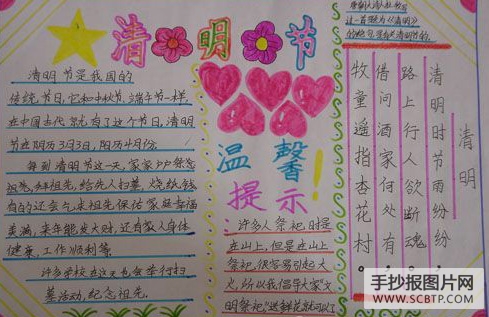 清明节
清明节是我国的
传统节日,它和中秋节、端午节一样
在中国古代就有了这个节日,清明
节在阴历3月3日,阳历4月份。
每到清明节这一天,家家户户祭念
祖先,拜祖先,给先人扫墓,烧纸钱
有的还会乞求祖先保佑家庭幸福
美满,来年能发大财,还有家人身体
健康,工作顺利等。
许多学校在这天也会举行扫
墓活动,纪念祖先。
温馨
提示!
许多人祭祀时是
在山上,但是在山上
祭祀,很容易引起大
火,所以我倡导大家"文
明祭祀"送鲜花就可以了
清明
清明时节雨纷纷
路上行人欲断魂
借问酒家何处有
牧童遥指杏花村。
手抄报图片网
WWW.SCBTP.COM